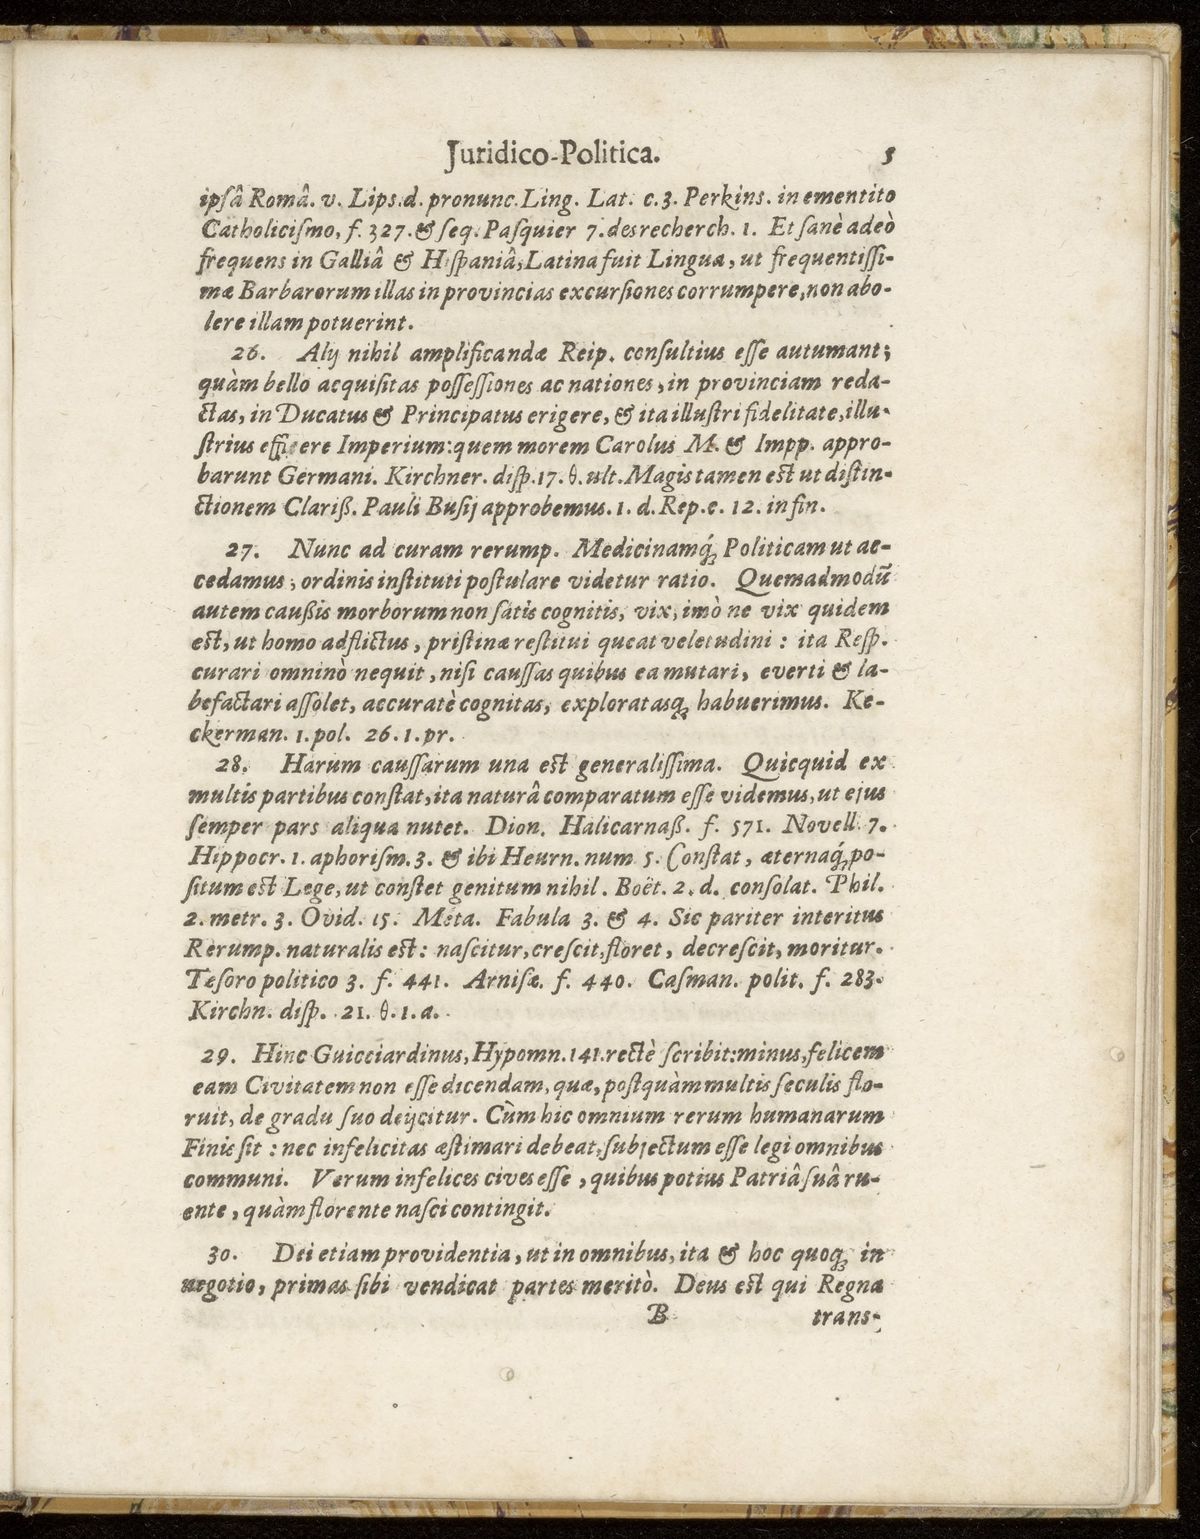 Juridico-Politica. 5
ipſâ Româ. v. Lips. d. pronunc. Ling. Lat. c. 3. Perkins. in ementito
Catholiciſmo, f. 327. & ſeq. Paſquier 7. des recherch. 1. Et ſanè adeò
frequens in Galliâ & Hiſpaniâ, Latina fuit Lingua, ut frequentiſſi-
mæ Barbarorum illas in provincias excurſiones corrumpere, non abo-
lere illam potuerint.
26. Alij nihil amplificandæ Reip. conſultius eſſe autumant;
quàm bello acquiſitas poſſeſſiones ac nationes, in provinciam reda-
ctas, in Ducatus & Principatus erigere, & ita illuſtri fidelitate, illu-
ſtrius efficere Imperium: quem morem Carolus M. & Impp. appro-
barunt Germani. Kirchner. diſp. 17. θ. ult. Magis tamen est ut diſtin-
ctionem Clariß. Pauli Buſij approbemus. 1. d. Rep. c. 12. in fin.
27. Nunc ad curam rerump. Medicinamq́; Politicam ut ac-
cedamus, ordinis inſtituti poſtulare videtur ratio. Quemadmodũ
autem caußis morborum non ſatis cognitis, vix, imò ne vix quidem
est, ut homo adflictus, priſtinæ reſtitui queat veletudini : ita Reſp.
curari omninò nequit, niſi cauſſas quibus ea mutari, everti & la-
befactari aſſolet, accuratè cognitas, exploratasq; habuerimus. Ke-
ckerman. 1. pol. 26. 1. pr.
28. Harum cauſſarum una est generaliſſima. Quicquid ex
multis partibus conſtat, ita naturâ comparatum eſſe videmus, ut ejus
ſemper pars aliqua nutet. Dion. Halicarnaß. f. 571. Novell. 7.
Hippocr. 1. aphoriſm. 3. & ibi Heurn. num 5. Conſtat, æternaq́; po-
ſitum est Lege, ut conſtet genitum nihil. Boët. 2. d. conſolat. Phil.
2. metr. 3. Ovid. 15. Meta. Fabula 3. & 4. Sic pariter interitus
Rerump. naturalis est: naſcitur, creſcit, floret, decreſcit, moritur.
Teſoro politico 3. f. 441. Arniſæ. f. 440. Caſman. polit. f. 283.
Kirchn. diſp. 21. θ. 1. a.
29. Hinc Guicciardinus, Hypomn. 141. rectè ſcribit: minus, felicem
eam Civitatem non eſſe dicendam, quæ, poſtquàm multis ſeculis flo-
ruit, de gradu ſuo deijcitur. Cùm hic omnium rerum humanarum
Finis ſit : nec infelicitas æſtimari debeat, ſubjectum eſſe legi omnibus
communi. Verum infelices cives eſſe, quibus potius Patriâ ſuâ ru-
ente, quàm florente naſci contingit.
30. Dei etiam providentia, ut in omnibus, ita & hoc quoq; in
negotio, primas ſibi vendicat partes meritò. Deus est qui Regna
B trans-